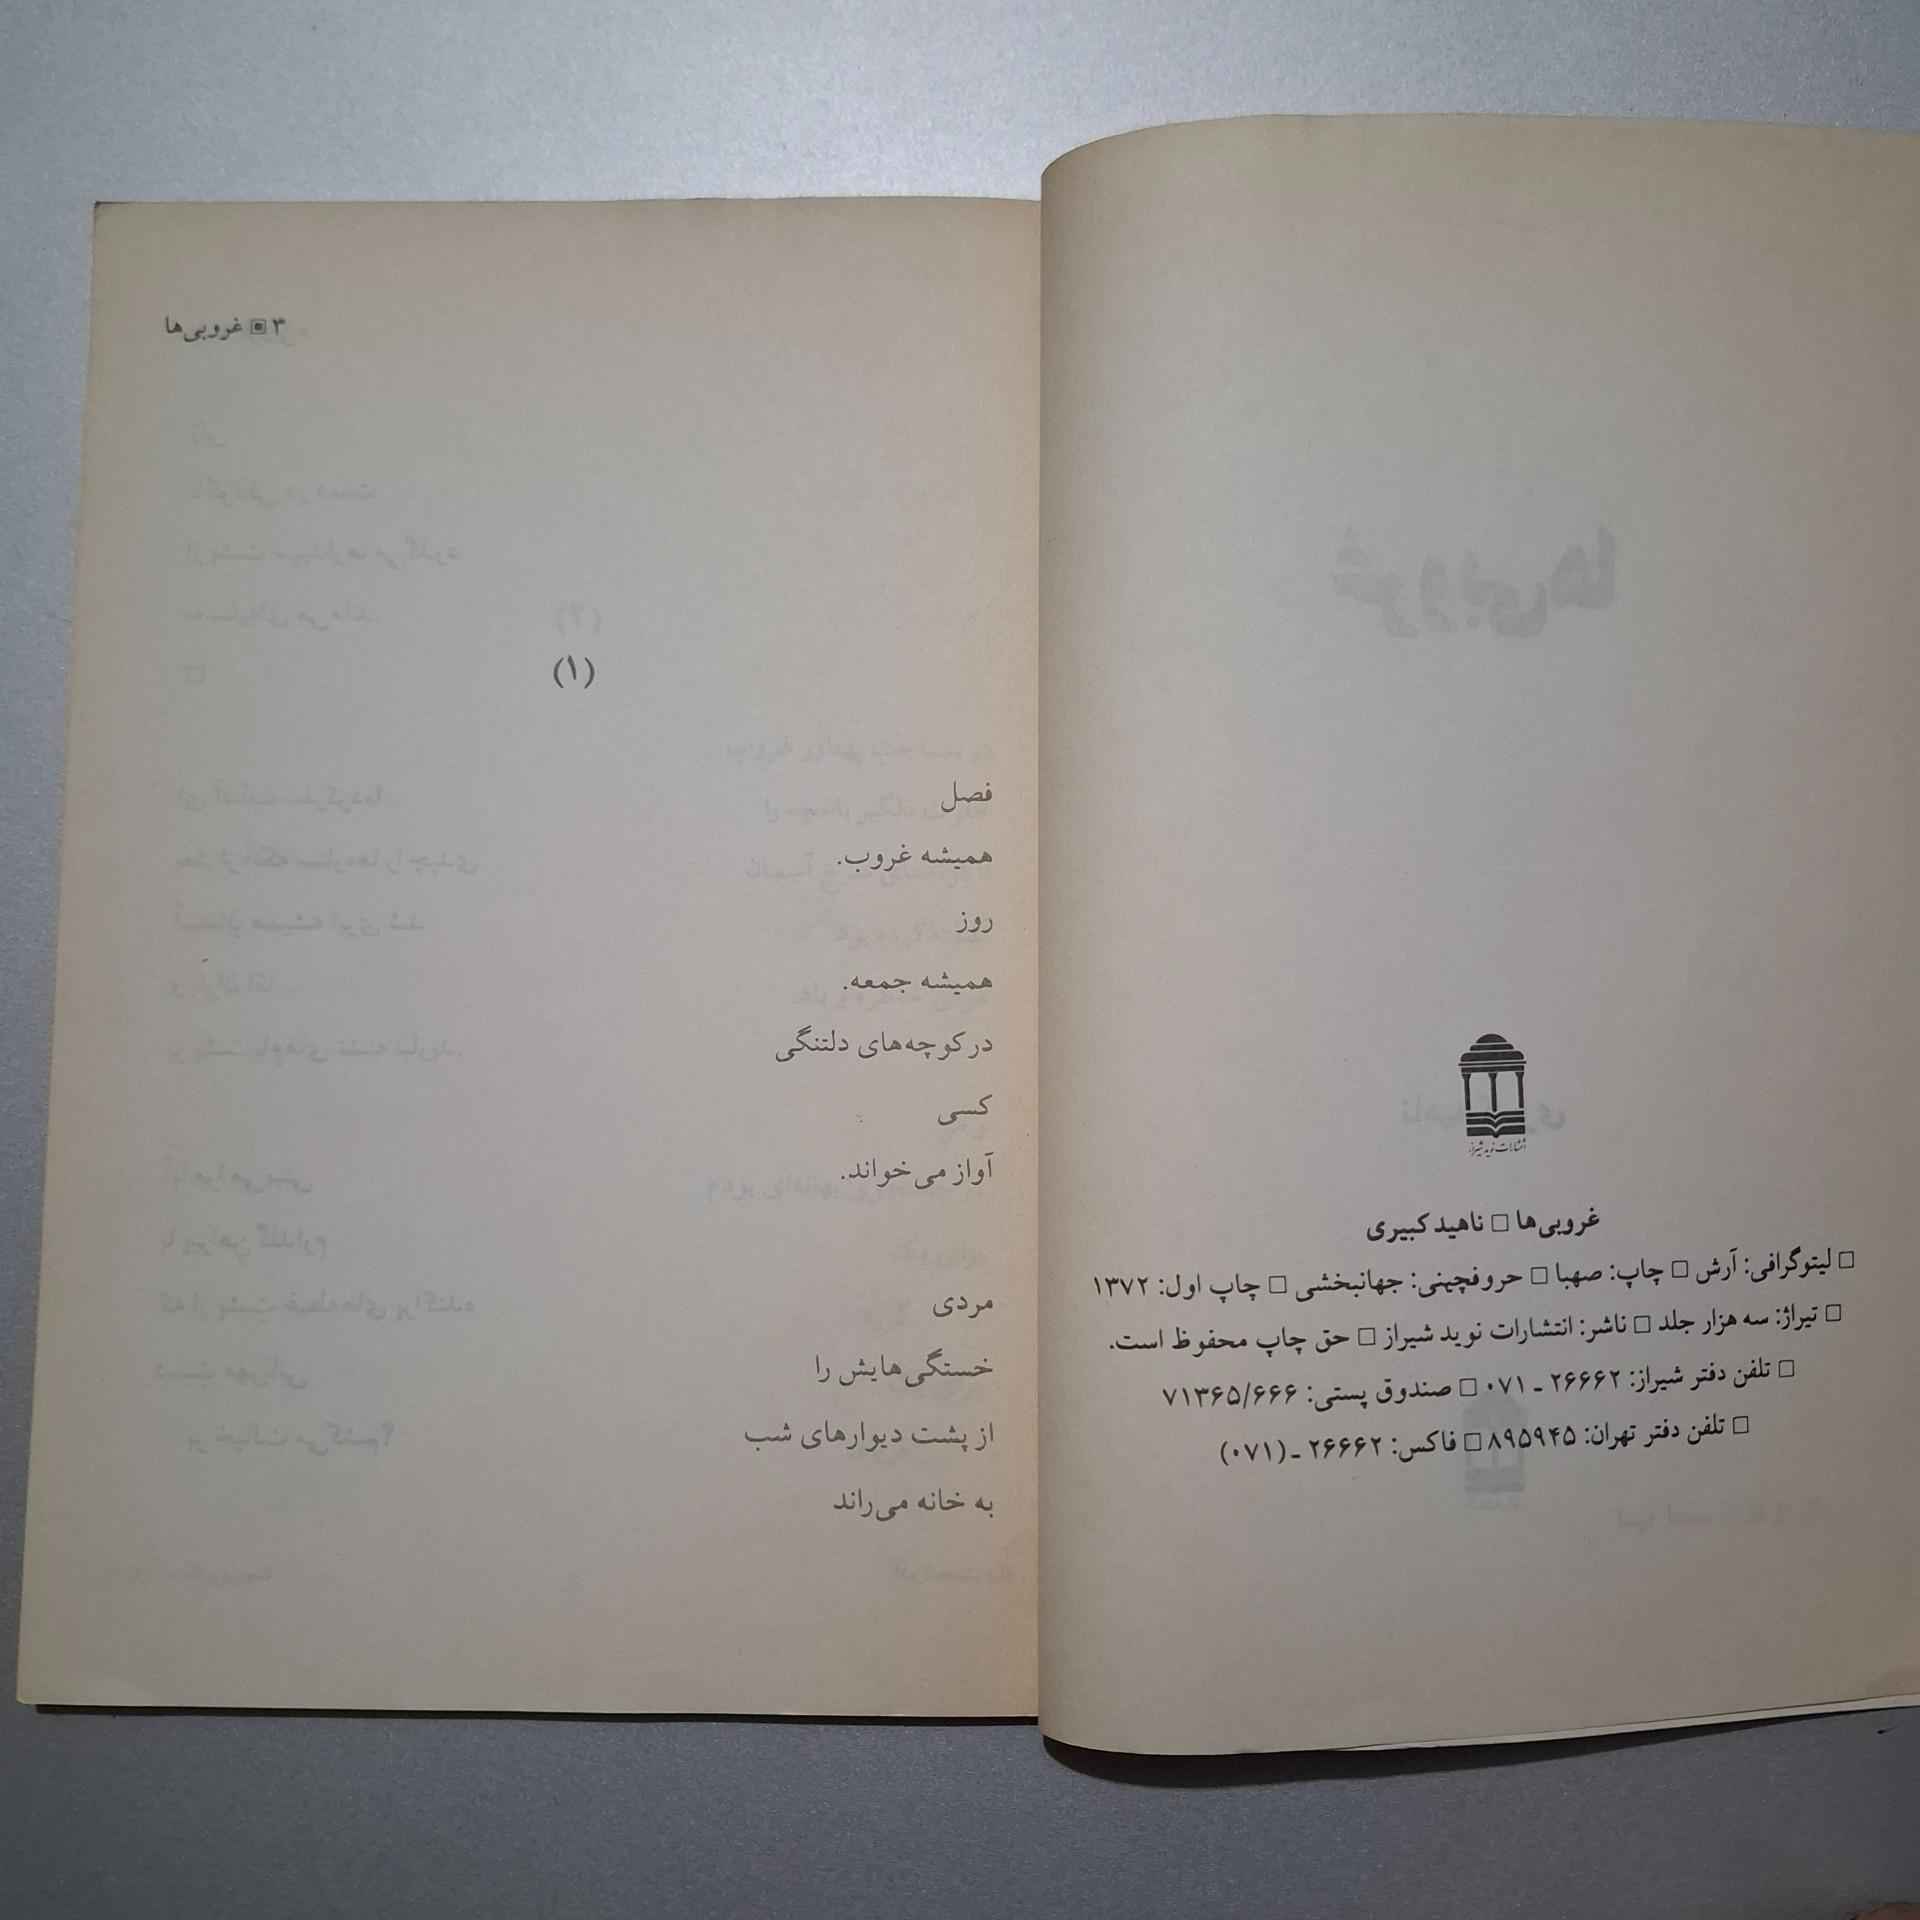 انتشارات نوید شیراز
غروبی‌ها □ ناهید کبیری
□ لیتوگرافی: آرش □ چاپ: صهبا □ حروفچینی: جهانبخشی □ چاپ اول: ۱۳۷۲
□ تیراژ: سه هزار جلد □ ناشر: انتشارات نوید شیراز □ حق چاپ محفوظ است.
□ تلفن دفتر شیراز: ۲۶۶۶۲ ـ ۰۷۱ □ صندوق پستی: ۷۱۳۶۵/۶۶۶
□ تلفن دفتر تهران: ۸۹۵۹۴۵ □ فاکس: ۲۶۶۶۲ ـ (۰۷۱)
۳ ▣ غروبی‌ها
(۱)
فصل
همیشه غروب.
روز
همیشه جمعه.
در کوچه‌های دلتنگی
کسی
آواز می‌خواند.
مردی
خستگی‌هایش را
از پشت دیوارهای شب
به خانه می‌راند